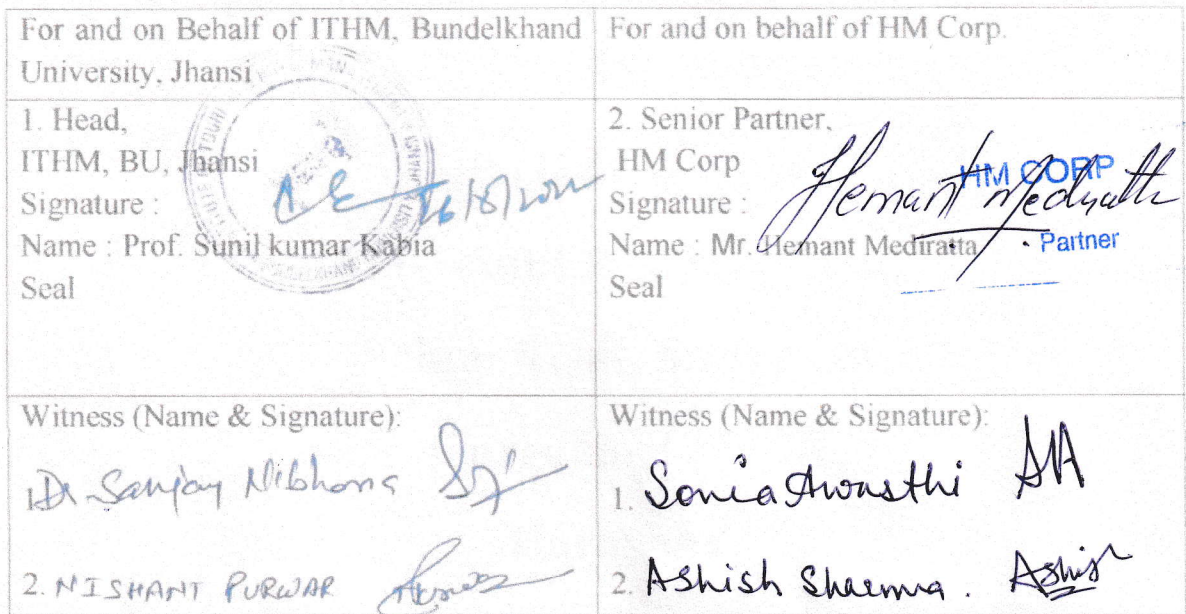 For and on Behalf of ITHM, Bundelkhand
University, Jhansi
For and on behalf of HM Corp.
1. Head,
ITHM, BU, Jhansi
Signature :
Name : Prof. Sunil kumar Kabia
Seal
2. Senior Partner,
HM Corp
Signature : Hemant Mediratta
HM CORP
Name : Mr. Hemant Mediratta
Partner
Seal
Witness (Name & Signature):
1. Dr Sanjay Nibhoria
2. NISHANT PURWAR
Witness (Name & Signature):
1. Sonia Awasthi SA
2. Ashish Sharma. Ashish